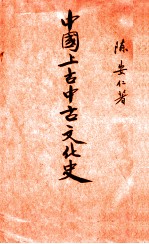 陳安仁著
中國上古中古文化史